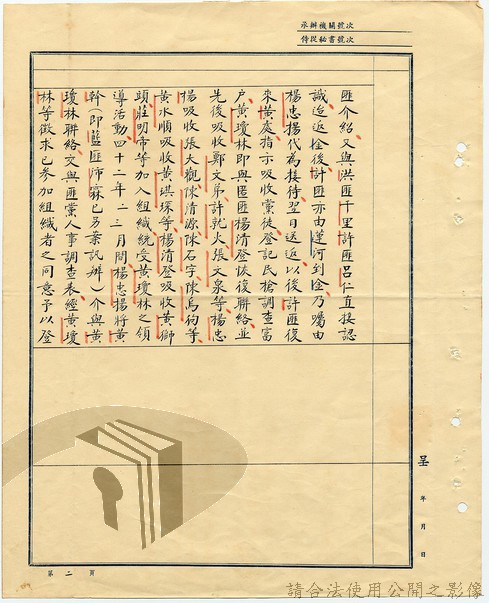 承辦機關號次
侍從秘書號次
匪介紹又與洪匪千里許匪呂仁直接認
識迨返金後許匪亦由蓮河到金乃囑由
楊忠揚代為接待翌日送返以後許匪復
來黃處指示吸收黨徒登記民槍調查富
戶黃瓊林即與匿匪楊清登恢復聯絡並
先後吸收鄭文弟許乾火張文泉等楊忠
揚吸收張大觀陳清源陳石字陳烏狗等
黃水順吸收黃琪琛等楊清登吸收黃獅
頭莊明市等加入組織統受黃瓊林之領
導活動四十二年二三月間楊忠揚將黃
幹(即藍匪沛霖已另案訊辦)介與黃
瓊林聯絡交與匪黨人事調查表經黃瓊
林等徵求已參加組織者之同意予以登
呈 年 月 日
第二頁
請合法使用公開之影像